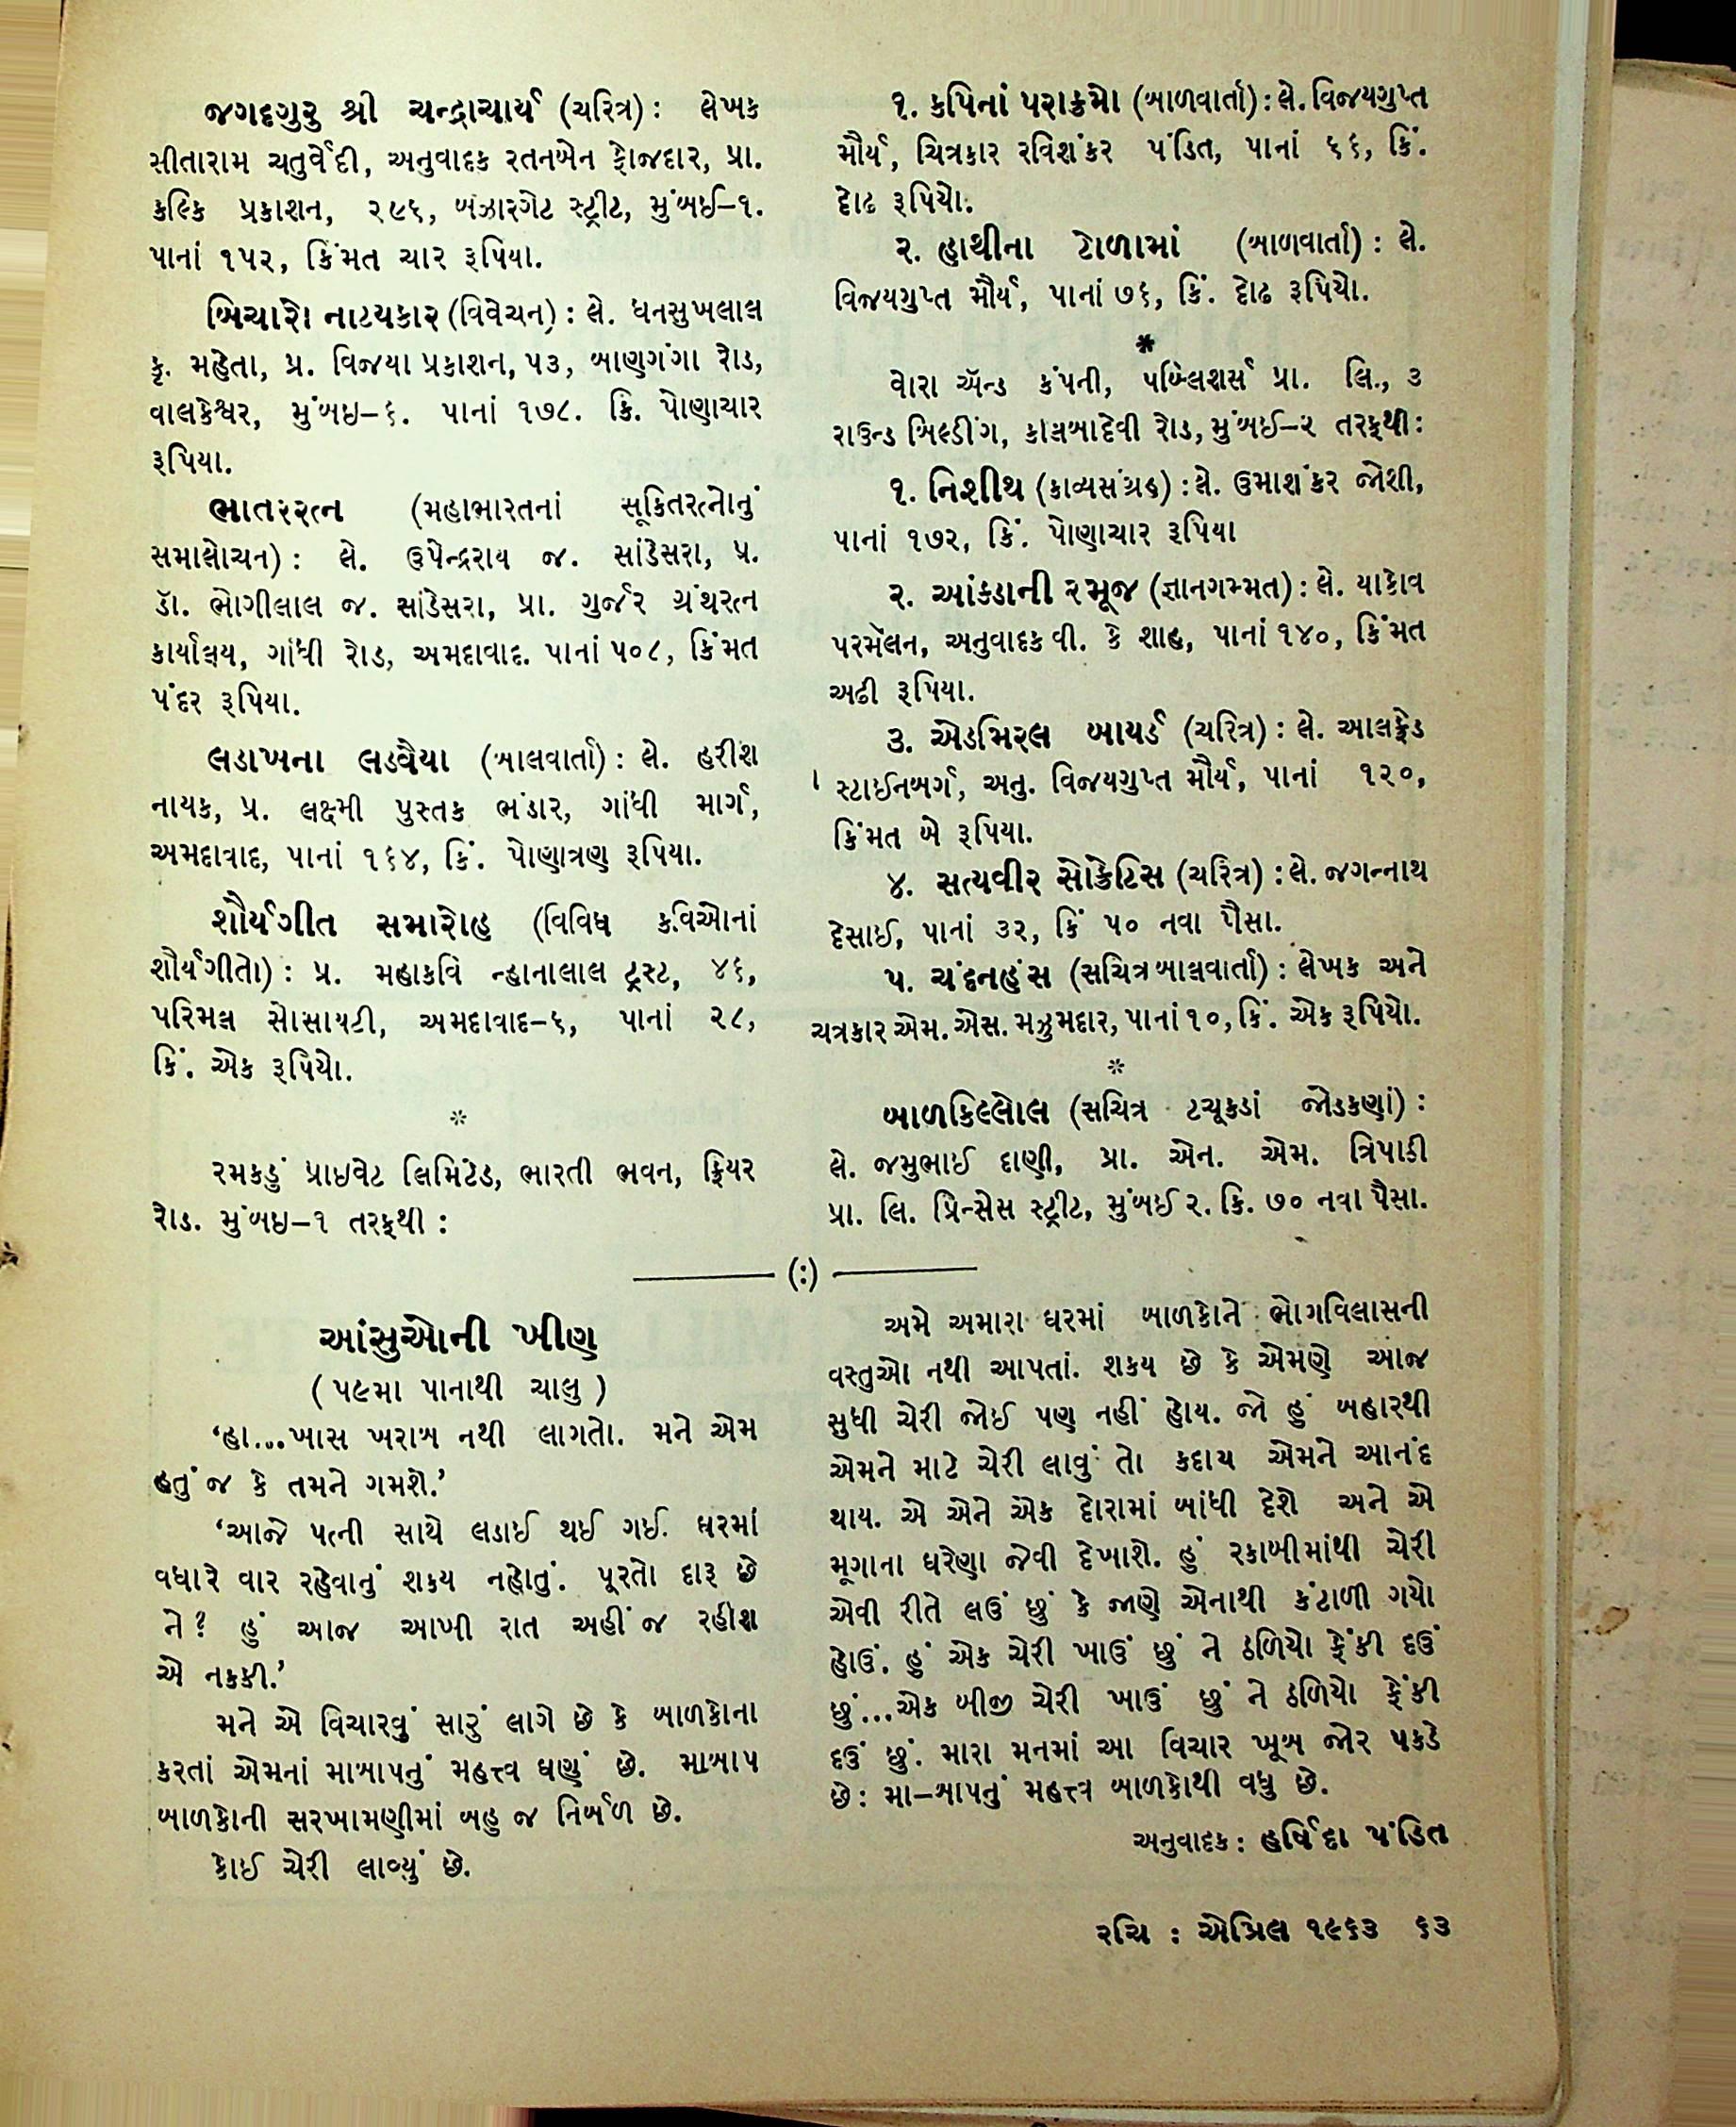 જગદ્ગુરુ શ્રી ચન્દ્રાચાર્ય (ચરિત્ર) : લેખક
સીતારામ ચતુર્વેદી, અનુવાદક રતનબેન ફોજદાર, પ્રા.
કલ્કિ પ્રકાશન, ૨૯૬, બઝારગેટ સ્ટ્રીટ, મુંબઈ–૧.
પાનાં ૧૫૨, કિંમત ચાર રૂપિયા.
બિચારો નાટ્યકાર (વિવેચન) : લે. ધનસુખલાલ
કૃ. મહેતા, પ્ર. વિજયા પ્રકાશન, ૫૩, બાણગંગા રોડ,
વાલકેશ્વર, મુંબઇ–૬. પાનાં ૧૭૮. કિ. પોણાચાર
રૂપિયા.
ભાતરરત્ન (મહાભારતનાં સૂક્તિરત્નોનું
સમાલોચન) : લે. ઉપેન્દ્રરાય જ. સાંડેસરા, પ્ર.
ડૉ. ભોગીલાલ જ. સાંડેસરા, પ્રા. ગુર્જર ગ્રંથરત્ન
કાર્યાલય, ગાંધી રોડ, અમદાવાદ. પાનાં ૫૦૮, કિંમત
પંદર રૂપિયા.
લડાખના લડવૈયા (બાલવાર્તા) : લે. હરીશ
નાયક, પ્ર. લક્ષ્મી પુસ્તક ભંડાર, ગાંધી માર્ગ,
અમદાવાદ, પાનાં ૧૬૪, કિં. પોણાત્રણ રૂપિયા.
શૌર્યગીત સમારોહ (વિવિધ કવિઓનાં
શૌર્યગીતો) : પ્ર. મહાકવિ ન્હાનાલાલ ટ્રસ્ટ, ૪૬,
પરિમલ સોસાયટી, અમદાવાદ–૬, પાનાં ૨૮,
કિં. એક રૂપિયો.
*
રમકડું પ્રાઇવેટ લિમિટેડ, ભારતી ભવન, ફ્રિયર
રોડ. મુંબઇ–૧ તરફથી :
૧. કપિનાં પરાક્રમો (બાળવાર્તા) : લે. વિજયગુપ્ત
મૌર્ય, ચિત્રકાર રવિશંકર પંડિત, પાનાં ૬૬, કિં.
દોઢ રૂપિયો.
૨. હાથીના ટોળામાં (બાળવાર્તા) : લે.
વિજયગુપ્ત મૌર્ય, પાનાં ૭૬, કિં. દોઢ રૂપિયો.
*
વોરા ઍન્ડ કંપની, પબ્લિશર્સ પ્રા. લિ., ૩
રાઉન્ડ બિલ્ડીંગ, કાલબાદેવી રોડ, મુંબઈ–૨ તરફથી :
૧. નિશીથ (કાવ્યસંગ્રહ) : લે. ઉમાશંકર જોશી,
પાનાં ૧૭૨, કિં. પોણાચાર રૂપિયા
૨. આંકડાની રમૂજ (જ્ઞાનગમ્મત) : લે. યાકોવ
પરમૅલન, અનુવાદક વી. કે શાહ, પાનાં ૧૪૦, કિંમત
અઢી રૂપિયા.
૩. એડમિરલ બાયર્ડ (ચરિત્ર) : લે. આલફ્રેડ
સ્ટાઈનબર્ગ, અનુ. વિજયગુપ્ત મૌર્ય, પાનાં ૧૨૦,
કિંમત બે રૂપિયા.
૪. સત્યવીર સોક્રેટિસ (ચરિત્ર) : લે. જગન્નાથ
દેસાઈ, પાનાં ૩૨, કિં ૫૦ નવા પૈસા.
૫. ચંદનહંસ (સચિત્ર બાલવાર્તા) : લેખક અને
ચત્રકાર એમ. એસ. મઝુમદાર, પાનાં ૧૦, કિં. એક રૂપિયો.
*
બાળકિલ્લોલ (સચિત્ર ટચૂકડાં જોડકણાં) :
લે. જમુભાઈ દાણી, પ્રા. એન. એમ. ત્રિપાઠી
પ્રા. લિ. પ્રિન્સેસ સ્ટ્રીટ, મુંબઈ ૨. કિ. ૭૦ નવા પૈસા.
(:)
આંસુઓની ખીણ
( ૫૯મા પાનાથી ચાલુ )
‘હા...ખાસ ખરાબ નથી લાગતો. મને એમ
હતું જ કે તમને ગમશે.’
‘આજે પત્ની સાથે લડાઈ થઈ ગઈ. ઘરમાં
વધારે વાર રહેવાનું શકય નહોતું. પૂરતો દારૂ છે
ને? હું આજ આખી રાત અહીં જ રહીશ
એ નક્કી.’
મને એ વિચારવું સારું લાગે છે કે બાળકોના
કરતાં એમનાં માબાપનું મહત્ત્વ ઘણું છે. માબાપ
બાળકોની સરખામણીમાં બહુ જ નિર્બળ છે.
કોઈ ચેરી લાવ્યું છે.
અમે અમારા ઘરમાં બાળકોને ભોગવિલાસની
વસ્તુઓ નથી આપતાં. શકય છે કે એમણે આજ
સુધી ચેરી જોઈ પણ નહીં હોય. જો હું બહારથી
એમને માટે ચેરી લાવું તો કદાચ એમને આનંદ
થાય. એ એને એક દોરામાં બાંધી દેશે અને એ
મૂગાના ઘરેણા જેવી દેખાશે. હું રકાબીમાંથી ચેરી
એવી રીતે લઉં છું કે જાણે એનાથી કંટાળી ગયો
હોઉં. હું એક ચેરી ખાઉં છું ને ઠળિયો ફેંકી દઉં
છું...એક બીજી ચેરી ખાઉં છું ને ઠળિયો ફેંકી
દઉં છું. મારા મનમાં આ વિચાર ખૂબ જોર પકડે
છે : મા–બાપનું મહત્ત્વ બાળકોથી વધુ છે.
અનુવાદક : હર્ષિદા પંડિત
રચિ : એપ્રિલ ૧૯૬૩ ૬૩